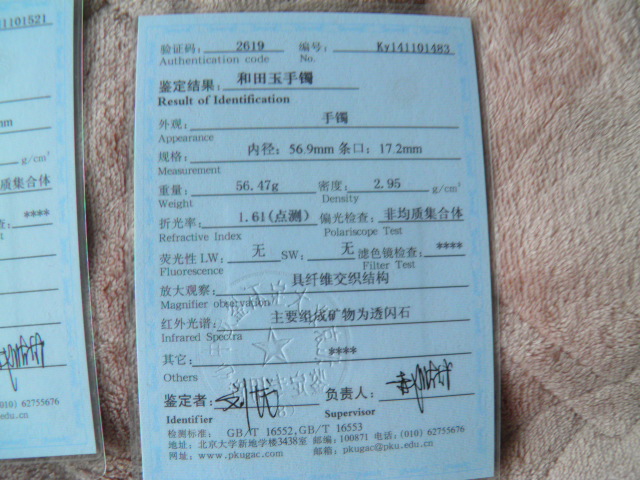 1101521
mm
g/cm³
质集合体
查: ****
(010) 62755676
edu.cn
验证码: 2619 编号: Ky141101483
Authentication code No.
鉴定结果: 和田玉手镯
Result of Identification
外观: 手镯
Appearance
规格: 内径: 56.9mm 条口: 17.2mm
Measurement
重量: 56.47g 密度: 2.95 g/cm³
Weight Density
折光率: 1.61(点测) 偏光检查: 非均质集合体
Refractive Index Polariscope Test
荧光性 I.W: 无 SW: 无 滤色镜检查: ****
Fluorescence Filter Test
放大观察: 具纤维交织结构
Magnifier observation
红外光谱: 主要组成矿物为透闪石
Infrared Spectra
其它: ****
Others
鉴定者: 负责人:
Identifier Supervisor
检测标准: GB/T 16552、GB/T 16553
地址: 北京大学新地学楼3438室 邮编: 100871 电话: (010) 62755676
网址: www.pkugac.com 邮箱: pkugac@pku.edu.cn